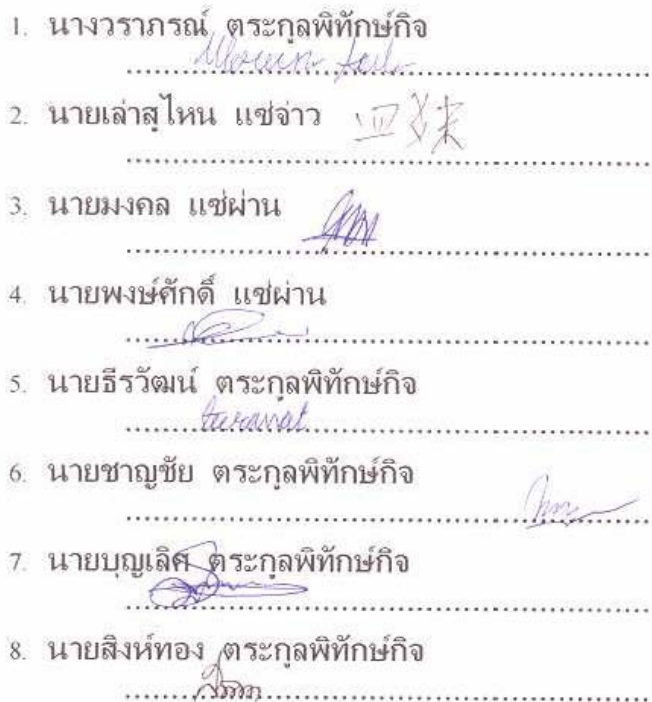 1. นางวราภรณ์ ตระกูลพิทักษ์กิจ
2. นายเล่าสูไหน แซ่จ่าว
3. นายมงคล แซ่ผ่าน
4. นายพงษ์ศักดิ์ แซ่ผ่าน
5. นายธีรวัฒน์ ตระกูลพิทักษ์กิจ
6. นายชาญชัย ตระกูลพิทักษ์กิจ
7. นายบุญเลิศ ตระกูลพิทักษ์กิจ
8. นายสิงห์ทอง ตระกูลพิทักษ์กิจ